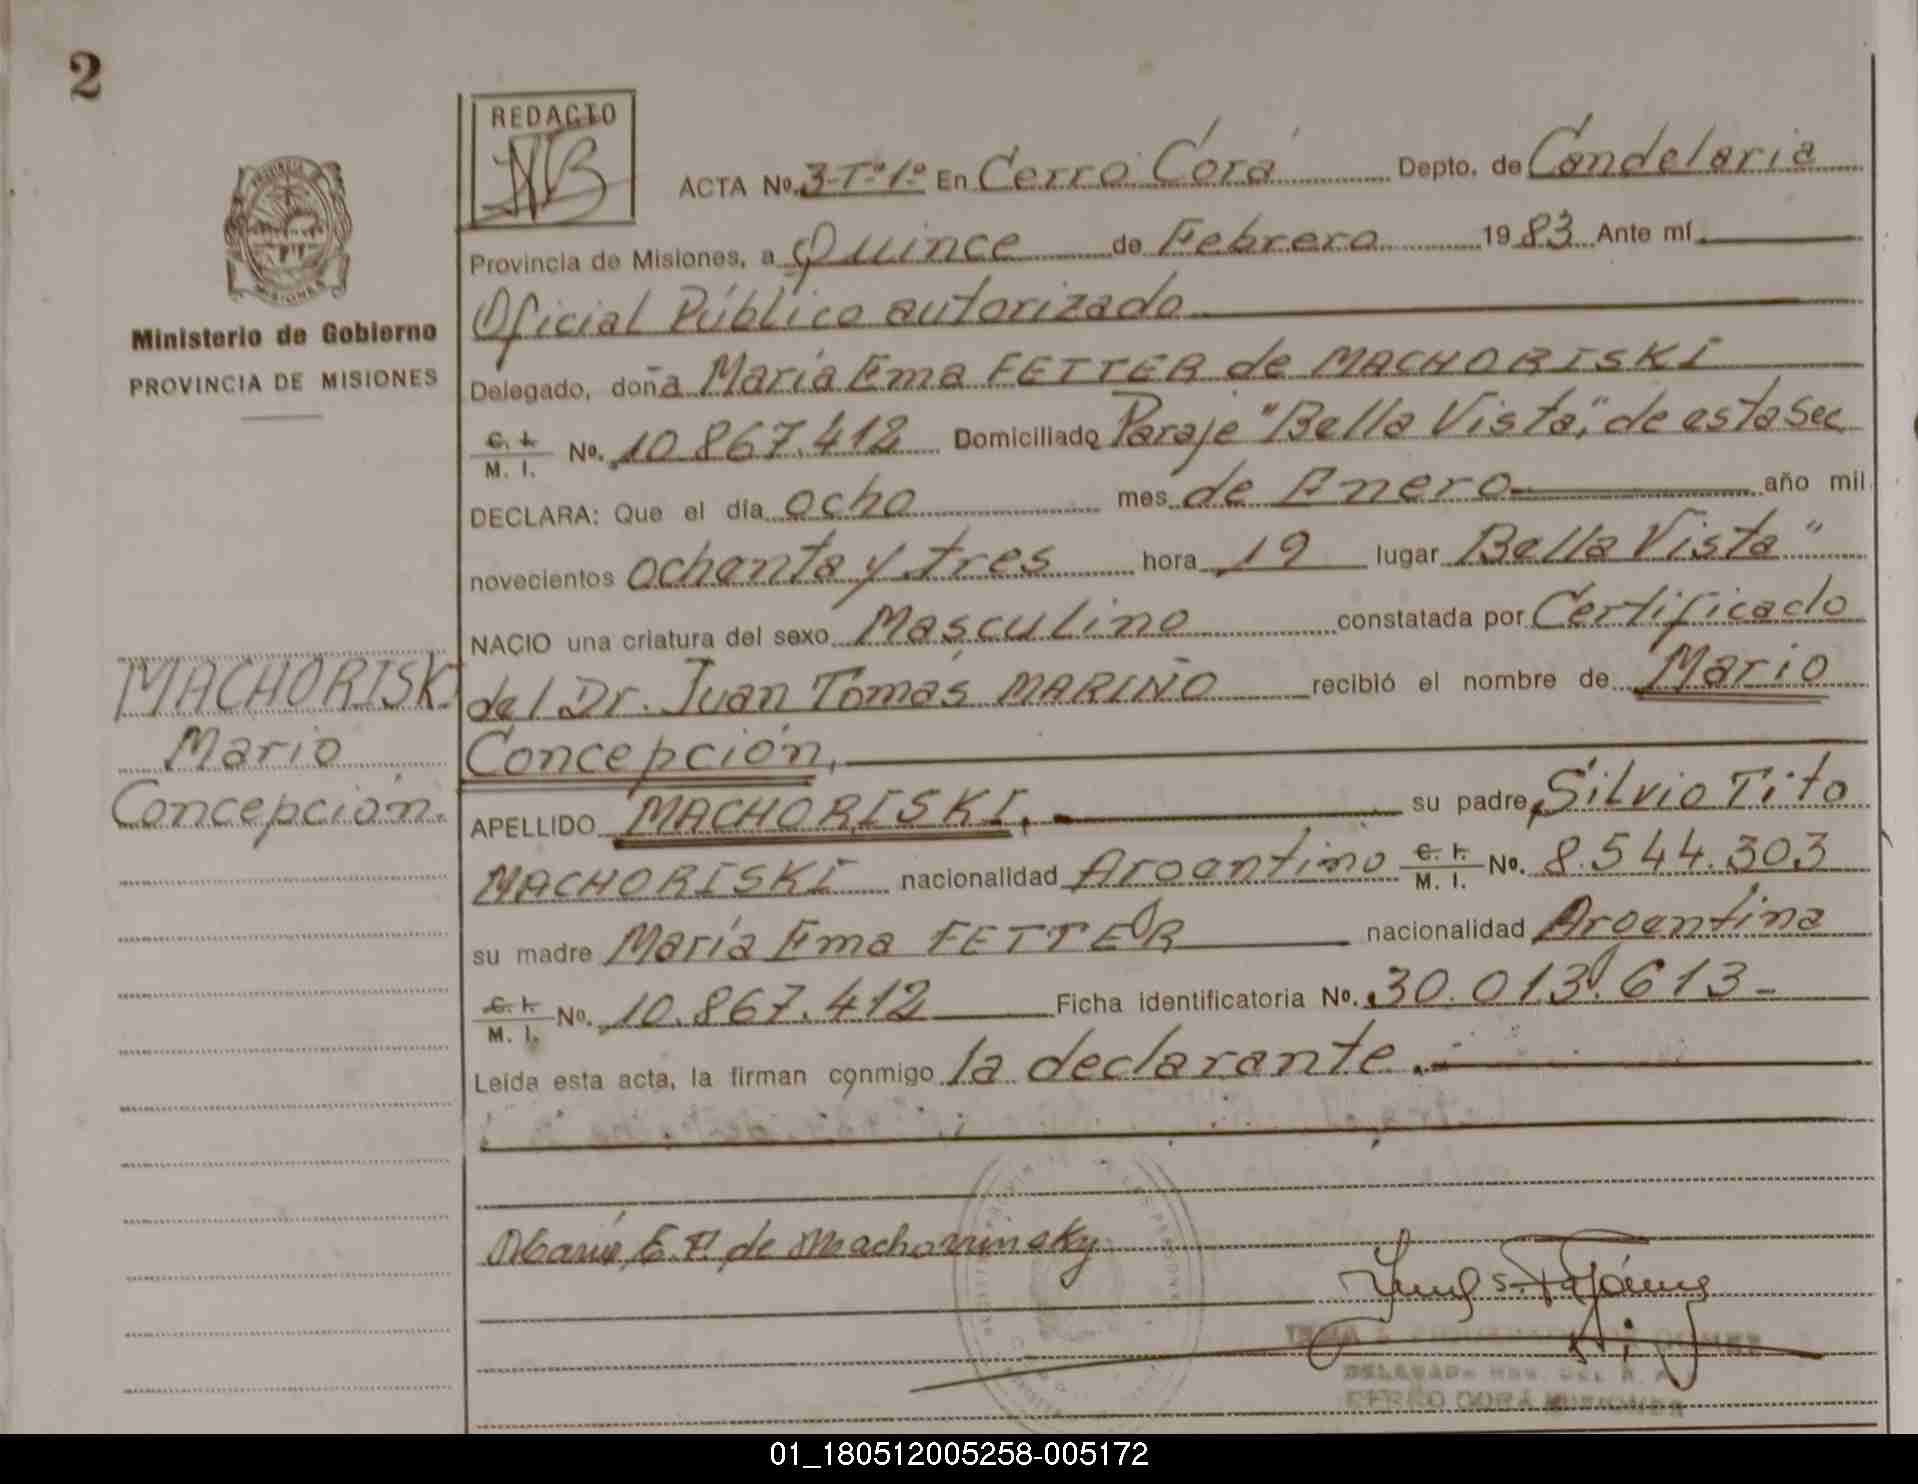 2
REDACTO
ACTA No. 3-Tº1º En Cerro Corá Depto. de Candelaria
Provincia de Misiones, a Quince de Febrero 1983 Ante mí
Oficial Público autorizado
Delegado, doña María Ema FETTER de MACHORISKI
C. I. / M. I. No. 10.867.412 Domiciliado Paraje "Bella Vista", de esta Sec
DECLARA: Que el día ocho mes de Enero año mil
novecientos ochenta y tres hora 19 lugar Bella Vista"
NACIO una criatura del sexo Masculino constatada por Certificado
del Dr. Juan Tomás MARIÑO recibió el nombre de Mario
Concepción,
APELLIDO MACHORISKI, su padre, Silvio Tito
MACHORISKI nacionalidad Argentino C. I. / M. I. No. 8.544.303
su madre María Ema FETTER nacionalidad Argentina
C. I. / M. I. No. 10.867.412 Ficha identificatoria No. 30.013.613-
Leída esta acta, la firman conmigo la declarante.
María E. F. de Machorinsky
CERRO CORÁ MISIONES
PROVINCIA
MISIONES
Ministerio de Gobierno
PROVINCIA DE MISIONES
MACHORISK
Mario
Concepción.
01_180512005258-005172